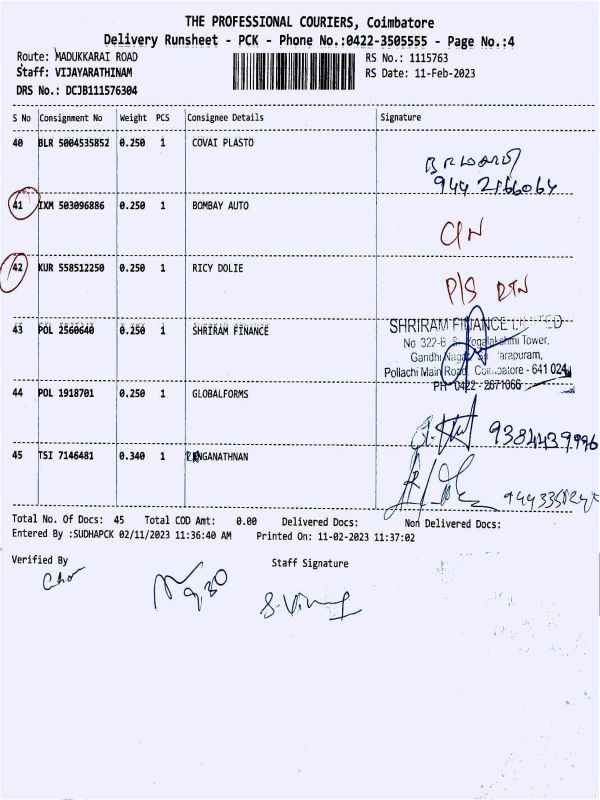 THE PROFESSIONAL COURIERS, Coimbatore
Delivery Runsheet - PCK - Phone No.:0422-3505555 - Page No.:4
Route: MADUKKARAI ROAD
RS No.: 1115763
Staff: VIJAYARATHINAM
RS Date: 11-Feb-2023
DRS No.: DCJB111576304
S No Consignment No Weight PCS Consignee Details Signature
40 BLR 5004535852 0.250 1 COVAI PLASTO
41 IXM 503096886 0.250 1 BOMBAY AUTO
C/N
42 KUR 558512250 0.250 1 RICY DOLIE
P/S RTN
43 POL 2560640 0.250 1 SHRIRAM FINANCE
SHRIRAM FINANCE LIMITED
No 322-B Yogalakshmi Tower,
Gandhi Nagar
Pollachi Main Road, Coimbatore - 641 024
PH 0422 - 2671066
44 POL 1918701 0.250 1 GLOBALFORMS
9384439996
45 TSI 7146481 0.340 1
Total No. Of Docs: 45 Total COD Amt: 0.00 Delivered Docs: Non Delivered Docs:
Entered By :SUDHAPCK 02/11/2023 11:36:40 AM Printed On: 11-02-2023 11:37:02
Verified By Staff Signature
9.30